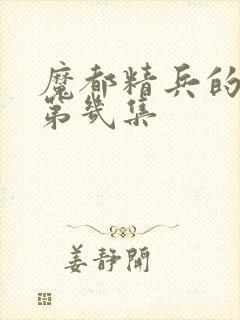 魔都精兵的
第几集
姜静開